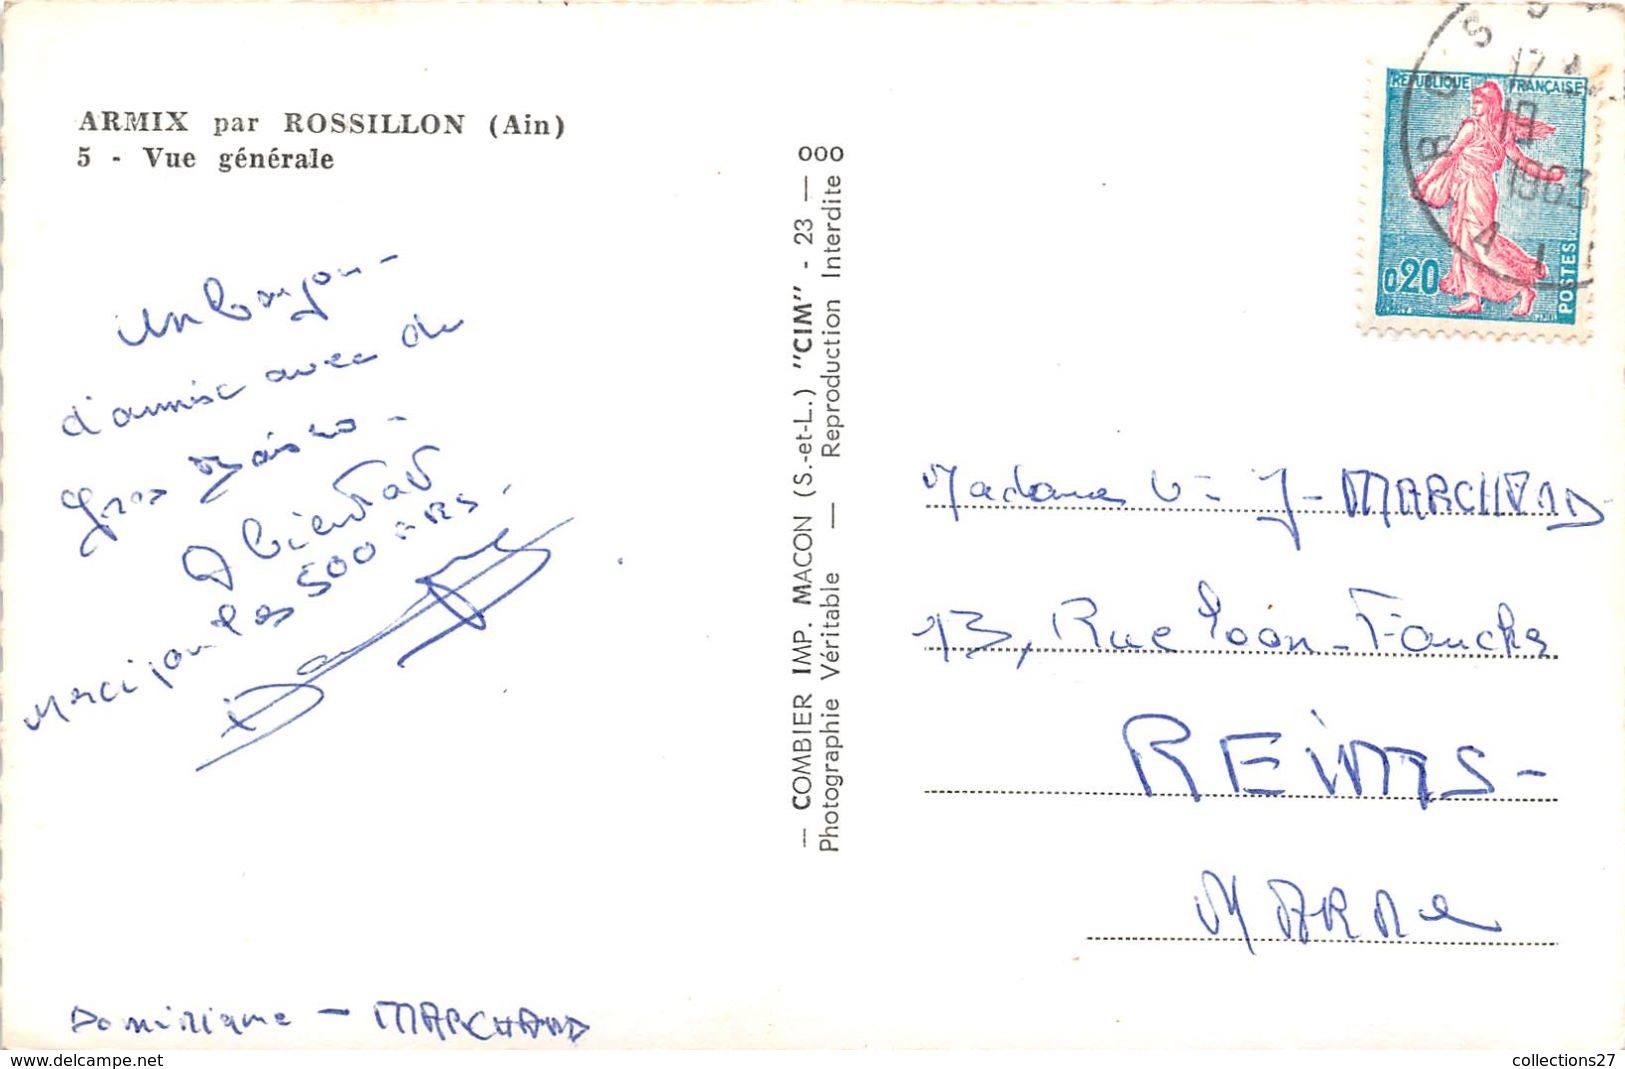 ARMIX par ROSSILLON (Ain)
5 - Vue générale
Un bonjour
d'amie avec de
gros baisers -
A bientôt
Merci pour les 500 ers.
Dominique - MARCHAND
000
— COMBIER IMP. MACON (S.-et-L.) "CIM" - 23 —
Photographie Véritable — Reproduction Interdite
REPUBLIQUE FRANÇAISE
0,20
POSTES
19
1963
Madame Ve J - MARCHAND
13, Rue
REIMS -
MARNe
collections27